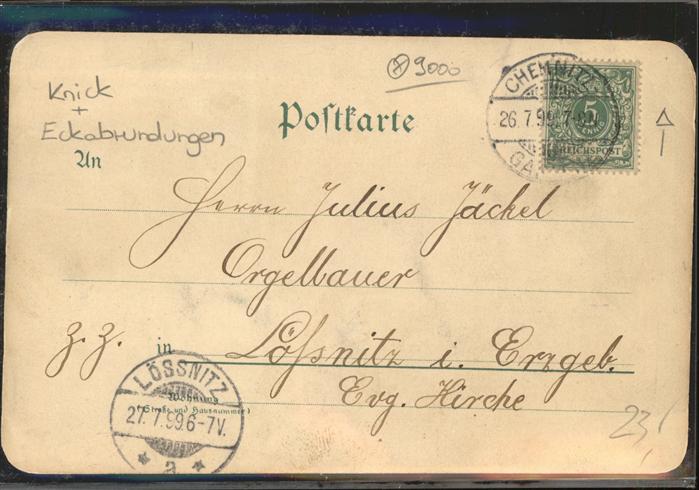 ⊗ 9000
Knick
+
Eckabrundungen
Postkarte
CHEMNITZ
26.7.99.7-8N.
5
REICHSPOST
An
Herrn Julius Jäckel
Orgelbauer
z. Z. in Lößnitz i. Erzgeb.
Evg. Kirche
LÖSSNITZ
Wohnung
(Straße und Hausnummer)
27.7.99.6-7V.
* a *
23,